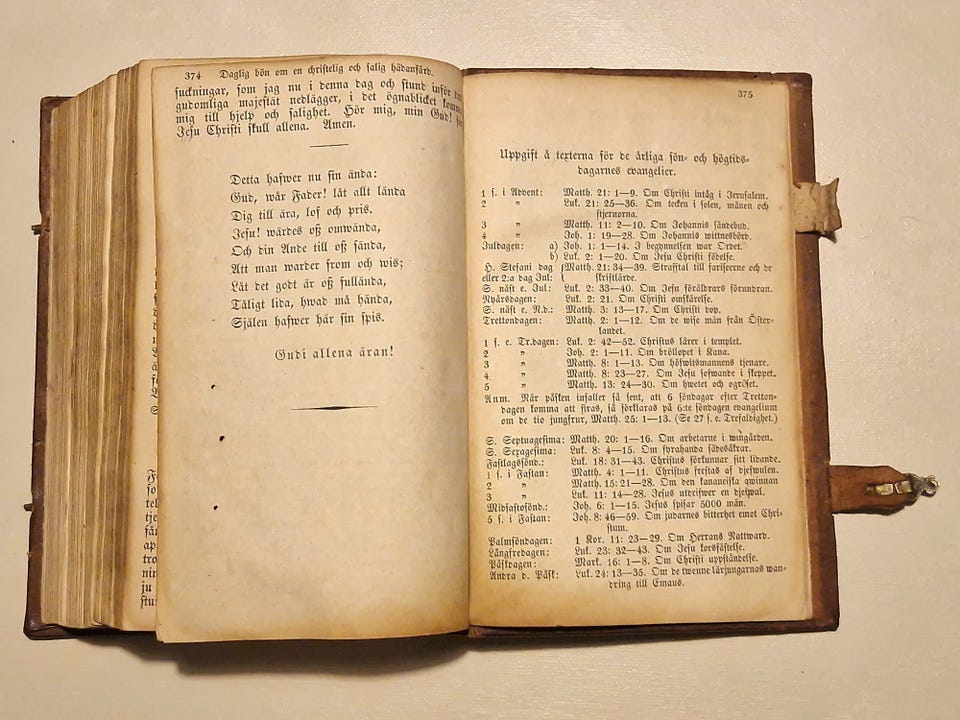 374 Daglig bön om en christelig och salig hädanfärd.
suckningar, som jag nu i denna dag och stund inför
gudomliga majestät nedlägger, i det ögnablicket
mig till hjelp och salighet. Hör mig, min Gud!
Jesu Christi skull allena. Amen.
Detta hafwer nu sin ända:
Gud, wår Fader! låt allt lända
Dig till ära, lof och pris.
Jesu! wärdes oß omwända,
Och din Ande till oß sända,
Att man warder from och wis;
Låt det godt är oß fullända,
Tåligt lida, hwad må hända,
Själen hafwer här sin spis.
Gudi allena äran!
375
Uppgift å texterna för de årliga sön- och högtids-
dagarnes evangelier.
1 s. i Advent: Matth. 21: 1—9. Om Christi intåg i Jerusalem.
2 „ Luk. 21: 25—36. Om tecken i solen, månen och
stjernorna.
3 „ Matth. 11: 2—10. Om Johannis sändebud.
4 „ Joh. 1: 19—28. Om Johannis wittnesbörd.
Juldagen: a) Joh. 1: 1—14. I begynnelsen war Ordet.
b) Luk. 2: 1—20. Om Jesu Christi födelse.
H. Stefani dag Matth. 21: 34—39. Strafftal till fariseerna och de
eller 2:a dag Jul: skriftlärde.
S. näst e. Jul: Luk. 2: 33—40. Om Jesu föräldrars förundran.
Nyårsdagen: Luk. 2: 21. Om Christi omskärelse.
S. näst e. N.d.: Matth. 3: 13—17. Om Christi dop.
Trettondagen: Matth. 2: 1—12. Om de wise män från Öster-
landet.
1 s. e. Tr.dagen: Luk. 2: 42—52. Christus lärer i templet.
2 „ Joh. 2: 1—11. Om bröllopet i Kana.
3 „ Matth. 8: 1—13. Om höfwitsmannens tjenare.
4 „ Matth. 8: 23—27. Om Jesu sofwande i skeppet.
5 „ Matth. 13: 24—30. Om hwetet och ogräset.
Anm. När påsken infaller så sent, att 6 söndagar efter Tretton-
dagen komma att firas, så förklaras på 6:te söndagen evangelium
om de tio jungfrur, Matth. 25: 1—13. (Se 27 s. e. Trefaldighet.)
S. Septuagesima: Matth. 20: 1—16. Om arbetarne i wingården.
S. Sexagesima: Luk. 8: 4—15. Om fyrahanda sädesåkrar.
Fastlagssönd.: Luk. 18: 31—43. Christus förkunnar sitt lidande.
1 s. i Fastan: Matth. 4: 1—11. Christus frestas af djefwulen.
2 „ Matth. 15: 21—28. Om den kananeiska qwinnan
3 „ Luk. 11: 14—28. Jesus utdrifwer en djefwul.
Midfastosönd.: Joh. 6: 1—15. Jesus spisar 5000 män.
5 s. i Fastan: Joh. 8: 46—59. Om judarnes bitterhet emot Chri-
stum.
Palmsöndagen: 1 Kor. 11: 23—29. Om Herrans Nattward.
Långfredagen: Luk. 23: 32—43. Om Jesu korsfästelse.
Påskdagen: Mark. 16: 1—8. Om Christi uppståndelse.
Andra d. Påsk: Luk. 24: 13—35. Om de twenne lärjungarnas wan-
dring till Emaus.